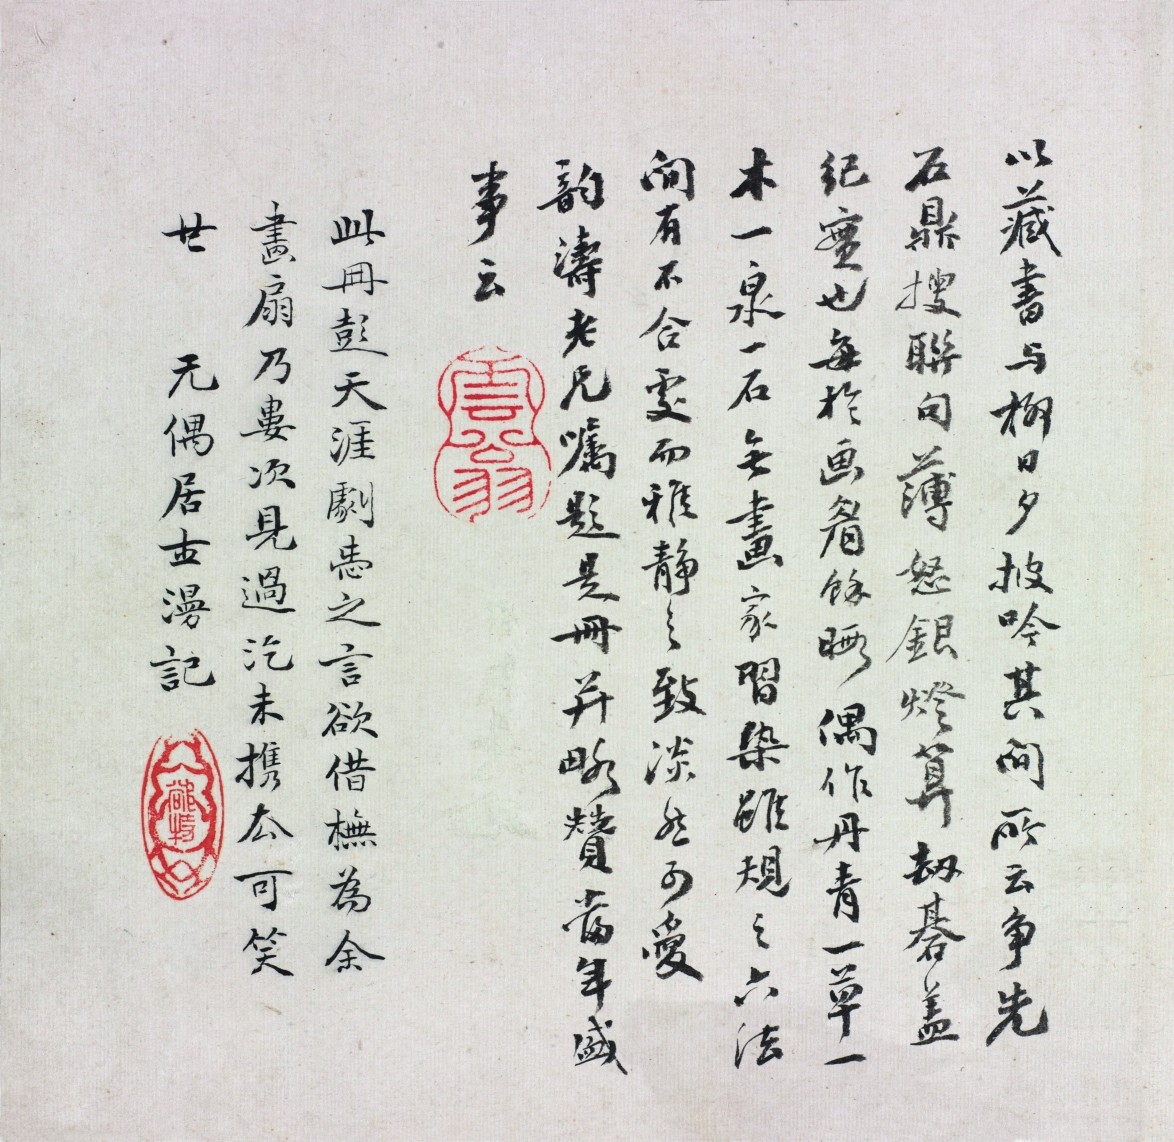 以藏書与日夕披吟其间所云争先
石鼎搜聯句薄怒銀燈算劫碁蓋
紀實也每於画眉餘暇偶作丹青一草一
木一泉一石無畫家習染雖規之六法
间有不合處而雅静之致淡然可愛
韵濤老兄嘱題是冊并略贊當年盛
事云
雲翁
此冊彭天涯劇之言欲借橅為余
畫扇乃婁次見過汔未携去可笑
廿 无偶居士漫記